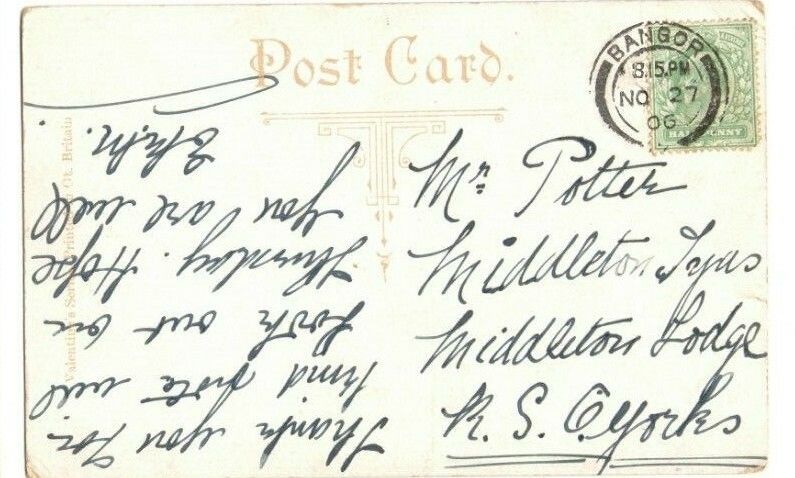 Post Card.
BANGOR
8.15 PM
NO 27
06
HALFPENNY
Mr. Potter
Middleton Tyas
Middleton Lodge
R. S. O. Yorks
Thank you for
kind note will
look out on
Thursday. Hope
you are well
Valentine's Series Printed in Gt. Britain